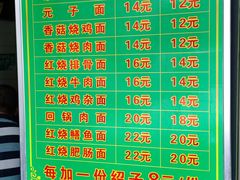 元子面 14元 12元
香菇烧鸡面 14元 12元
香菇烧肉面 14元 12元
红烧排骨面 16元 14元
红烧牛肉面 16元 14元
红烧鸡杂面 16元 14元
回锅肉面 20元 18元
红烧鳝鱼面 22元 20元
红烧肥肠面 22元 20元
每加一份绍子8元/份